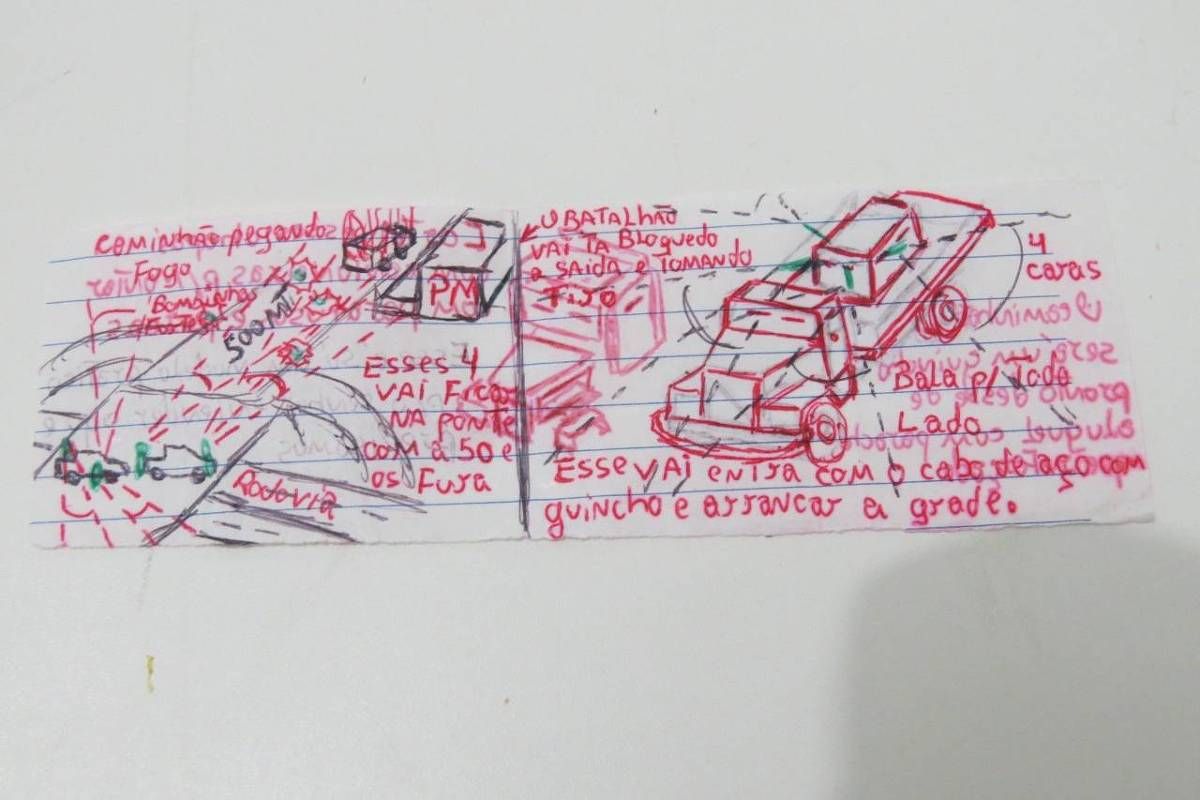 caminhão pegando
Fogo
Bombinhas
500M
PM
Esses 4
VAI FICA
NA PONTE
com a 50 e
os Fura
Rodovia
O BATALhÃO
VAI TA BloquEdo
a SAÍDA E TOMANDO
Tiro
4
caras
Bala p/ Todo
Lado
Esse VAi entra com o cabo de aço com
guincho e arrancar a grade.